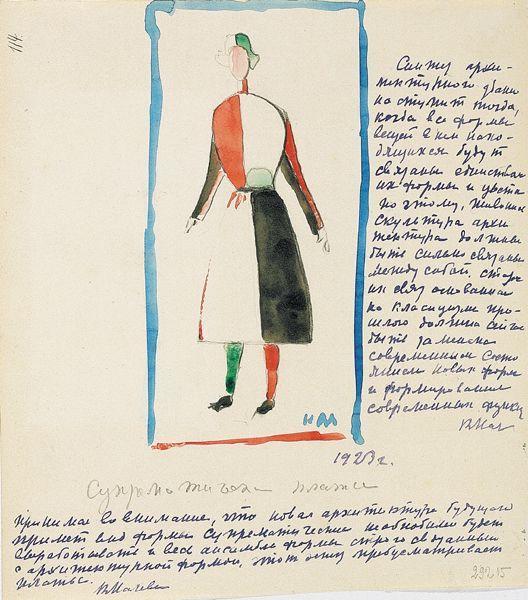 114.
Синтез архи-
тектурного здани
наступит тогда,
когда все формы
вещей в нем нахо-
дящихся будут
связаны единством
их формы и цвета
поэтому, живопись
скульптура архи
тектура должны
быть сильно связаны
между собой, стар
их связ основанная
на класицизме про-
шлого должна
быть заменена
современным состо
янием новых форм
и формирование
современных
КМал
КМ
1923 г.
Супрематическ платье
принимая во внимание, что новая архитектура будущего
примет вид формы супрематические необходимо будет
выработать и весь ансамбль формы строго связанный
с архитектурной формою, этот эскиз предусматривает
платье.
КМалеви